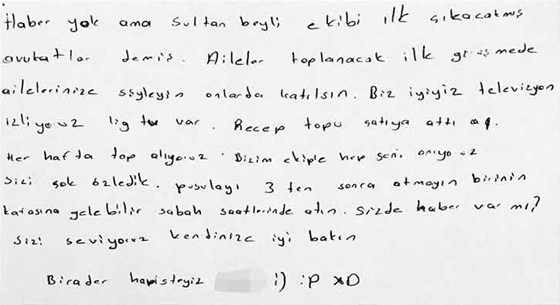 Haber yok ama sultan beyli ekibi ilk çıkacakmış
avukatlar demiş. Aileler toplanacak ilk görüşmede
ailelerinize söyleyin onlarda katılsın. Biz iyiyiz televizyon
izliyoruz lig tv var. Recep topu çatıya attı aq.
Her hafta top alıyoruz. Bizim ekiple hep seni anıyoruz
Sizi çok özledik. pusulayı 3 ten sonra atmayın birinin
kafasına gelebilir sabah saatlerinde atın. Sizde haber var mı?
Sizi seviyoruz kendinize iyi bakın
Birader hapisteyiz :) :P xD